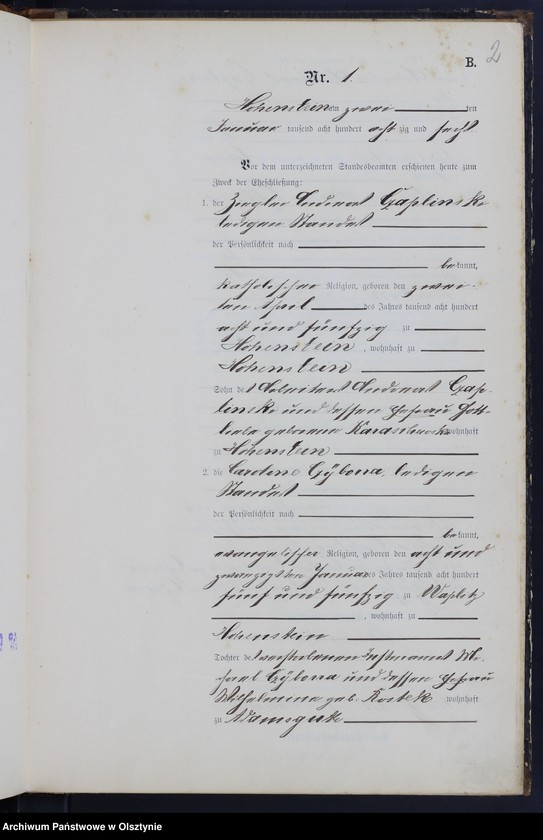 2
B.
Nr. 1.
Hohenstein am zwei ten
Januar tausend acht hundert acht zig und sechs
Vor dem unterzeichneten Standesbeamten erschienen heute zum
Zweck der Eheschließung:
1. der Ziegler Andreas
ledigen Standes
der Persönlichkeit nach
bekannt,
katholischer Religion, geboren den zwei-
ten April des Jahres tausend acht hundert
acht und fünfzig zu
Hohenstein, wohnhaft zu
Hohenstein
Sohn des Arbeiters
und dessen Ehefrau Gott-
liebe geborene wohnhaft
zu Hohenstein
2. die ledigen
Standes
der Persönlichkeit nach
bekannt,
evangelischer Religion, geboren den acht und
zwanzigsten Januar des Jahres tausend acht hundert
fünf und fünfzig zu Waplitz
, wohnhaft zu
Hohenstein
Tochter des verstorbenen Instmannes Mi-
chael und dessen Ehefrau
Wilhelmine geb. Kostek wohnhaft
zu Adamsguth
Archiwum Państwowe w Olsztynie